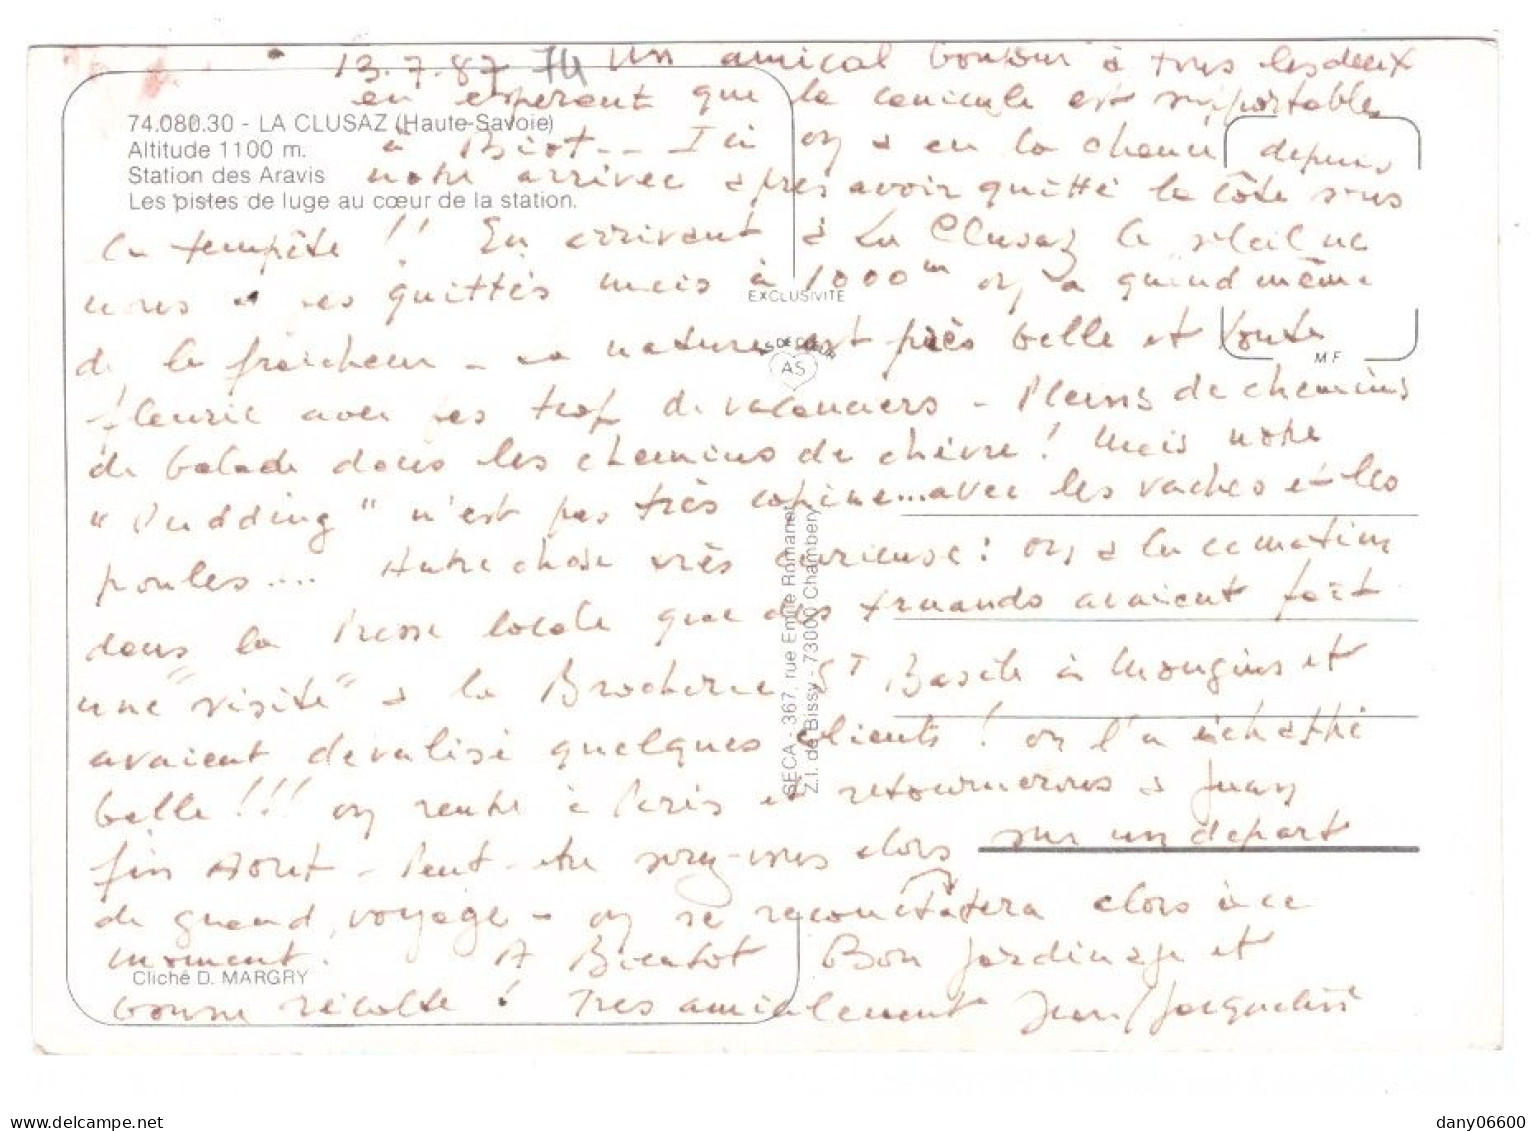 13.7.87 74 Un amical bonjour à tous les deux
en espérant que la canicule est supportable
74.080.30 - LA CLUSAZ (Haute-Savoie)
Altitude 1100 m.
Station des Aravis
Les pistes de luge au cœur de la station.
à Biot... Ici on a eu la chance depuis
notre arrivée après avoir quitté la Côte sous
la tempête !! En arrivant à La Clusaz le soleil ne
nous a pas quittés mais à 1000m on a quand même
EXCLUSIVITE
de la fraîcheur - La nature est très belle et toute
AS DE CŒUR
AS
M F
fleurie avec pas trop de vacanciers - Pleins de chemins
de balade dans les chemins de chèvre ! Mais notre
"Pudding" n'est pas très copine... avec les vaches et les
poules.... Autre chose très curieuse : on a lu ce matin
dans la Presse locale que des truands avaient fait
une "visite" à la Brocherie St Basile à Mougins et
avaient dévalisé quelques clients ! on l'a échappé
belle !!! on rentre à Paris et retournerons à Juan
fin Aout - Peut-être serez-vous alors sur un départ
de grand voyage - on se recontactera alors à ce
moment. A Bientot Bon jardinage et
bonne récolte ! Tres amicalement Jean/Jacqueline
SECA - 367, rue Emile Romanet
Z.I. de Bissy - 73000 Chambery
Cliché D. MARGRY
dany06600